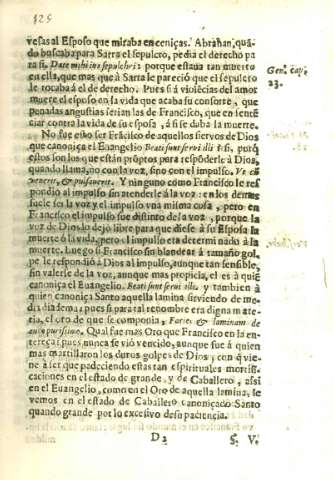 vesas al Esposo que miraba en ceniças. Abrahan, quá-
do buscaba para Sarra el sepulcro, pedia el derecho pa
ra si, Date mihi ius sepulchri porque estaua tan muerto
en ella, que mas que à Sarra le pareció que el sepulcro
le tocaba á el de derecho. Pues si á violécias del amor
muere el esposo en la vida que acaba su consorte, que
penadas angustias serian las de Francisco, que en senté
ciar contra la vida de su esposa, á si se daba la muerte.
Gen. cap.
23.
No fue esso ser Frácisco de aquellos siervos de Dios
que canoniça el Evangelio Beati sunt servi illi
ellos son los que están próptos para respóderle à Dios,
quando llama, no con la voz, sino con el impulso.
& pulsaverit. Y ninguno como Francisco le res
pondió al impulso sin atenderle á la voz: en los demas
suele ser la voz y el impulso vna misma cosa, pero en
Francisco el impulso fue distinto de la voz, porque la
voz de Dios lo dejó libre para que diese à su Esposa la
muerte ó la vida, pero el impulso era determinado à la
muerte. Luego si Francisco sin blandear á tamaño gol,
pe le respondió à Dios al impulso, aunque tan sensible,
sin valerse de la voz, aunque mas propicia, el es à quié
canoniça el Evangelio. Beati sunt servi illi, y tambien à
quien canoniça Santo aquella lamina sirviendo de me
dia dema; pues si para tal renombre era digna mate-
ria, el oro de que se componia, Facies & laminam de
auro purissimo. Qual fue mas Oro que Francisco en la en
tereça; pues nunca se vió vencido, aunque fue á quien
mas martillaron los duros golpes de Dios; con q́ vie-
ne à ser que padeciendo estas tan espirituales mortifi-
caciones en el estado de grande, y de Caballero, assi
en el Euangelio, como en el Oro de aquella lamina, le
vemos en el estado de Caballero canoniçado Santo
quando grande por lo excesivo de su paciencia.
D2
§. V.